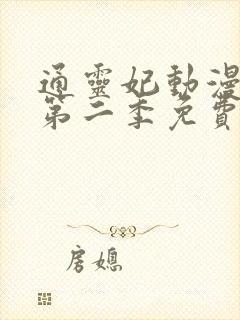 通靈妃動漫
第二季免費
房媳